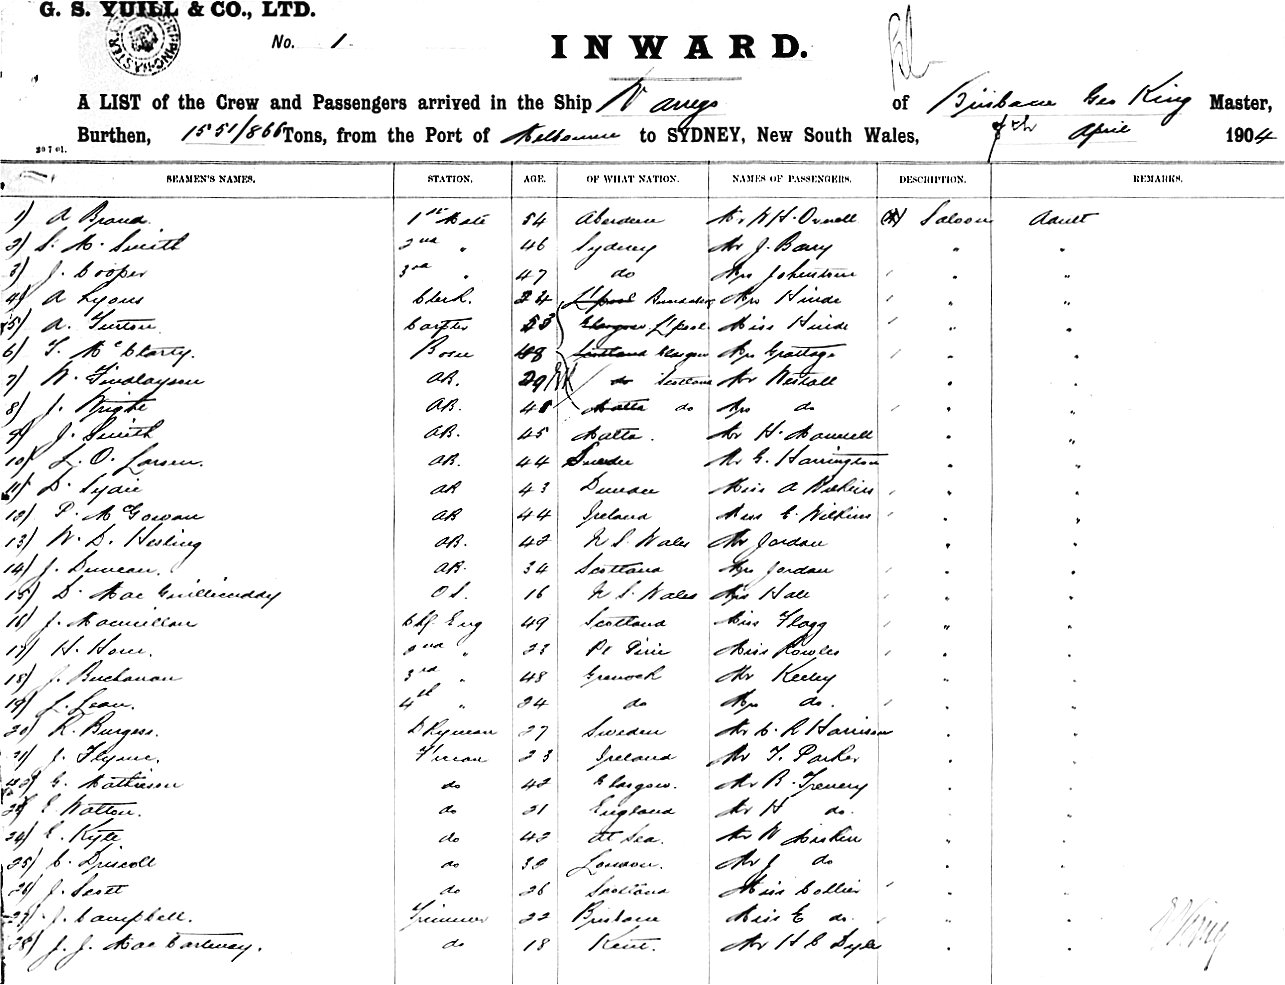 G. S. YUILL & CO., LTD.
No. 1.
INWARD.
A LIST of the Crew and Passengers arrived in the Ship Warrego of Brisbane Geo King Master,
Burthen, 1551/866 Tons, from the Port of Melbourne to SYDNEY, New South Wales, 7th April 1904
20 7 01.
SEAMEN'S NAMES. STATION. AGE. OF WHAT NATION. NAMES OF PASSENGERS. DESCRIPTION. REMARKS.
1) A Brand 1st Mate 54 Aberdeen Mr W H Saloon Adult
2) S. M. Smith 2nd " 46 Sydney Mr J. Barry " "
3) J. Cooper 3rd " 47 do Mrs Johnstone " "
4) A Lyons Clerk. 24 L'pool Mrs Hinde " "
5) A. Turton 53 Glasgow L'pool Miss Hinde " "
6) T. McClarty. Bosn 48 Scotland Glasgow Mrs " "
7) W. Findlayson AB. 29 do Scotland Mr Westall " "
8) J. Wright AB. 48 Malta do Mrs do " "
9) J. Smith AB. 45 Malta. Mr H. " "
10) L. O. Larsen. AB. 44 Mr G. Harrington " "
11) D. AB 43 Miss A Wilkins " "
12) P. McGowan AB 44 Ireland Miss E. Wilkins " "
13) W. D. Hesling AB. 42 N S Wales Mr Jordan " "
14) J. Duncan. AB. 34 Scotland Mrs Jordan " "
15) D. Mac Guillicuddy O S. 16 N S Wales Mrs Hall " "
16) J. Macmillan Chf Eng 49 Scotland Miss Flagg " "
17) H. Howe. 2nd " 23 Pt Pirie Miss Rowles " "
18) J. Buchanan 3rd " 48 Greenock Mr Keeley " "
19) L. Lean. 4th " 24 do Mrs do. " "
20) R. Burgess. 27 Sweden Mr C. R Harrison " "
21) J. Flynn. F'man 23 Ireland Mr T. Parker " "
22) G. Mathiesen do 42 Glasgow. Mr B. " "
23) E Watton. do 21 England Mr H do. " "
24) E. Kyte do 42 At Sea. Mr W Miskin " "
25) C. Driscoll do 32 London. Mr J do " "
26) J. Scott do 26 Scotland Miss Collier " "
27) J. Campbell. Trimmer 22 Brisbane Miss E do. " "
28) J. J. Mac Cartney. do 18 Kent. Mr H C Dyle " "